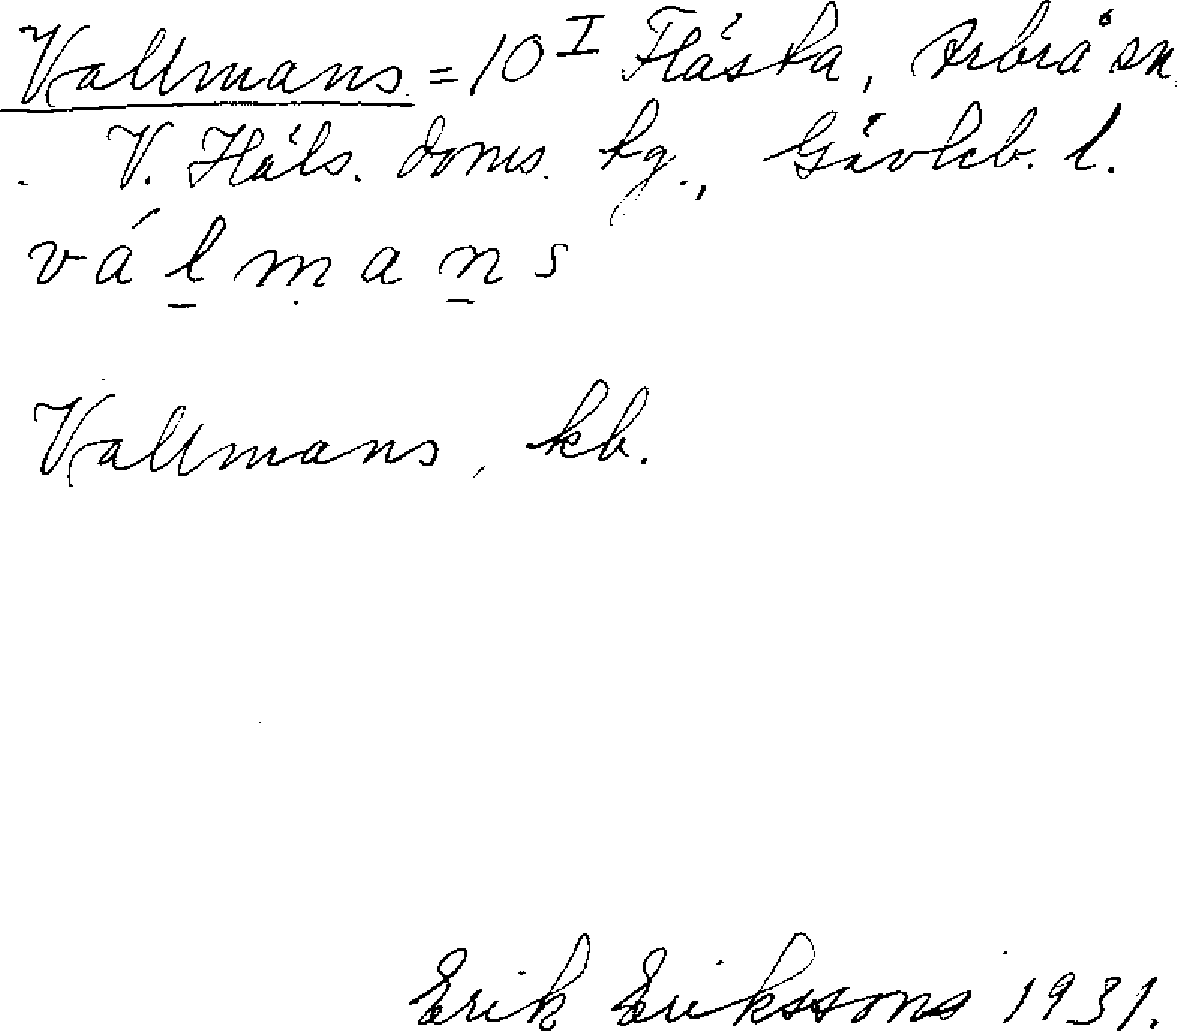 Vallmans = 10 I Fläska, Arbrå sn.
V. Häls. doms. tg., Gävleb. l.
v á l m a n s
Vallmans, kb.
Erik Eriksson 1931.